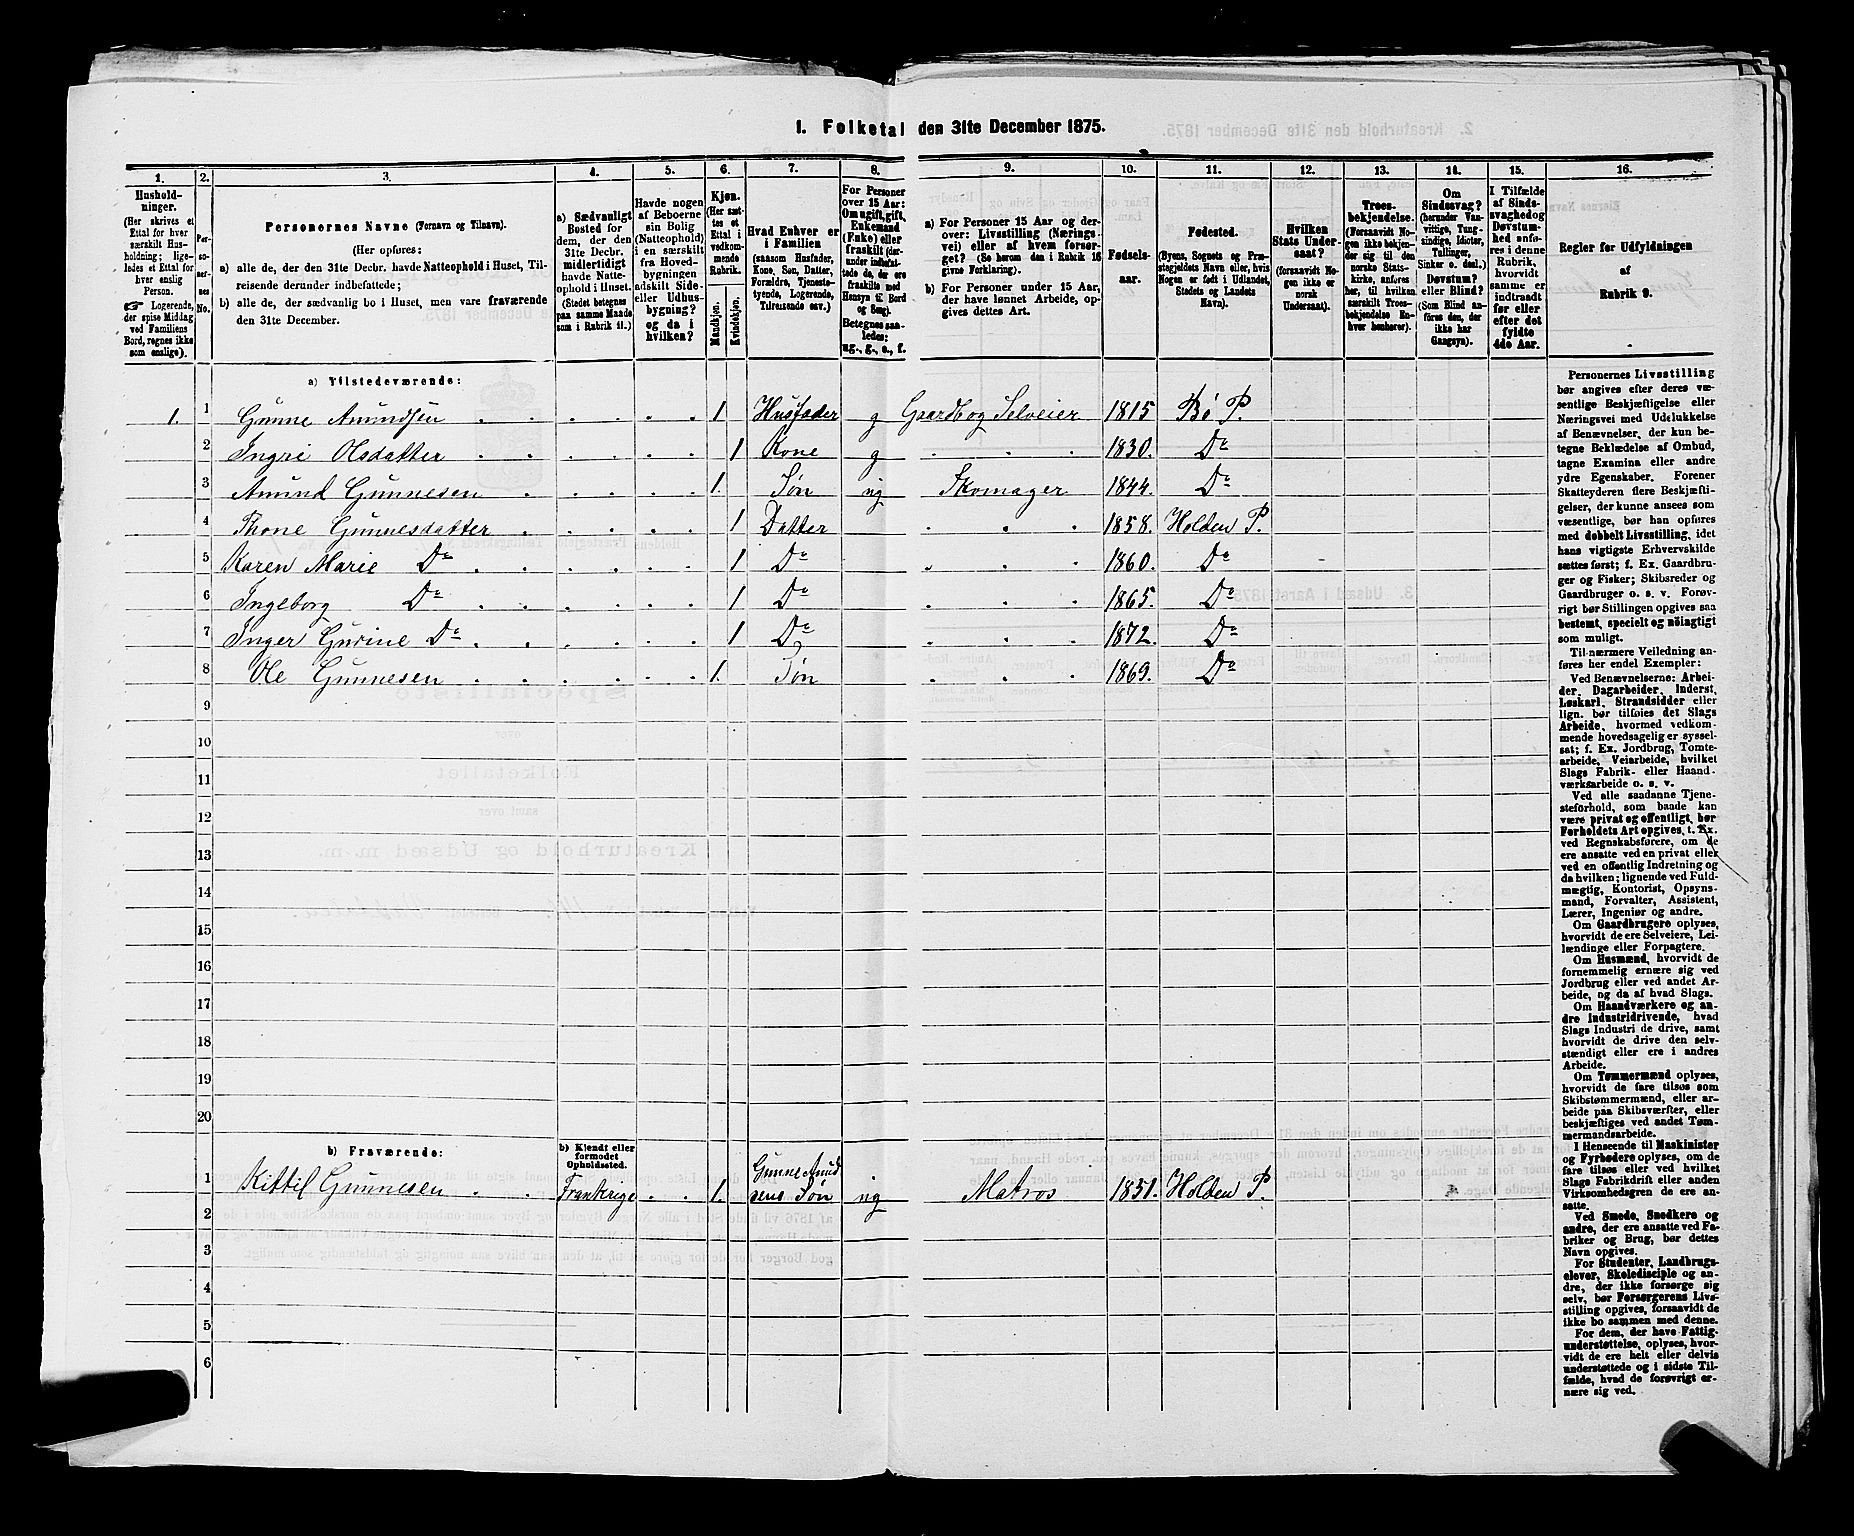 1. Folketal den 31te December 1875.
1. 2. 3. 4. 5. 6. 7. 8. 9. 10. 11. 12. 13. 14. 15. 16.
Husholdninger.
(Her skrives et
Ettal for hver
særskilt Hus-
holdning; lige-
ledes et Ettal for
hver enslig
Person.
☞ Logerende,
der spise Middag
ved Familiens
Bord, regnes ikke
som enslige).
Personernes No.
Personernes Navne (Fornavn og Tilnavn).
(Her opføres:
a) alle de, der den 31te Decbr. havde Natteophold i Huset, Til-
reisende derunder indbefattede;
b) alle de, der sædvanlig bo i Huset, men vare fraværende
den 31te December.
a) Sædvanligt
Bosted for
dem, der den
31te Decbr.
midlertidigt
havde Natte-
ophold i Huset.
(Stedet betegnes
paa samme Maade
som i Rubrik 11.)
Havde nogen
af Beboerne
sin Bolig
(Natteophold)
i en særskilt
fra Hoved-
bygningen
adskilt Side-
eller Udhus-
bygning?
og da i
hvilken?
Kjøn.
(Her sæt-
tes et
Ettal i
vedkom-
mende
Rubrik.
Mandkjøn.
Kvindekjøn.
Hvad Enhver er
i Familien
(saasom Husfader,
Kone, Søn, Datter,
Forældre, Tjeneste-
tyende, Logerende,
Tilreisende osv.)
For Personer
over 15 Aar:
Om ugift, gift,
Enkemand
(Enke) eller
fraskilt (der-
under indbefat-
tede de, der ere
fraskilte med
Hensyn til Bord
og Seng).
Betegnes saa-
ledes:
ug., g., e., f.
a) For Personer 15 Aar og der-
over: Livsstilling (Nærings-
vei) eller af hvem forsør-
get? (Se herom den i Rubrik 16
givne Forklaring).
b) For Personer under 15 Aar,
der have lønnet Arbeide, op-
gives dettes Art.
Fødsels-
aar.
Fødested.
(Byens, Sognets og Præ-
stegjeldets Navn eller, hvis
Nogen er født i Udlandet,
Stedets og Landets
Navn).
Hvilken
Stats Under-
saat?
(forsaavidt No-
gen ikke er
norsk
Undersaat).
Troes-
bekjendelse.
(Forsaavidt No-
gen ikke bekjen-
der sig til den
norske Stats-
kirke, anføres
her, til hvilken
særskilt Troes-
bekjendelse En-
hver henhører).
Om
Sindssvag?
(herunder Van-
vittige, Tung-
sindige, Idioter,
Tullinger,
Sinker o. desl.)
Døvstum?
eller Blind?
(Som Blind an-
føres den, der
ikke har
Gangsyn).
I Tilfælde
af Sinds-
svaghed og
Døvstum-
hed anfø-
res i denne
Rubrik,
hvorvidt
samme er
indtraadt
før eller
efter det
fyldte
4de Aar.
Regler for Udfyldningen
af
Rubrik 9.
a) Tilstedeværende:
1. 1 Gunne Amundsen 1. Husfader g Gaardb og Selveier 1815 Bø P.
2 Ingri Olsdatter 1 Kone g 1830. Do
3 Amund Gunnesen 1. Søn ug Skomager 1844. Do
4 Thone Gunnesdatter 1 Datter 1858. Holden P.
5 Karen Marie Do 1 Do 1860. Do
6 Ingeborg Do 1 Do 1865. Do
7 Inger Gurine Do 1 Do 1872. Do
8 Ole Gunnesen 1. Søn 1869. Do
9
10
11
12
13
14
15
16
17
18
19
20
b) Fraværende:
b) Kjendt eller
formodet
Opholdssted.
1 Kittil Gunnesen Frankrige 1. Gunne Amund
sens Søn ug Matros 1851. Holden P.
2
3
4
5
6
Personernes Livsstilling
bør angives efter deres væ-
sentlige Beskjæftigelse eller
Næringsvei med Udelukkelse
af Benævnelser, der kun be-
tegne Beklædelse af Ombud,
tagne Examina eller andre
ydre Egenskaber. Forener
Skatteyderen flere Beskjæfti-
gelser, der kunne ansees som
væsentlige, bør han opføres
med dobbelt Livsstilling, idet
hans vigtigste Erhvervskilde
sættes først; f. Ex. Gaardbru-
ger og Fisker; Skibsreder og
Gaardbruger o. s. v. Forøv-
rigt bør Stillingen opgives saa
bestemt, specielt og nöiagtigt
som muligt.
Til nærmere Veiledning an-
føres her endel Exempler:
Ved Benævnelserne: Arbei-
der, Dagarbeider, Inderst,
Løskarl, Strandsidder eller
lign. bør tilføies det Slags
Arbeide, hvormed vedkom-
mende hovedsagelig er syssel-
sat; f. Ex. Jordbrug, Tomte-
arbeide, Veiarbeide, hvilket
Slags Fabrik- eller Haand-
værksarbeide o. s. v.
Ved alle saadanne Tjene-
steforhold, som baade kan
være privat og offentligt, bør
Forholdets Art opgives, t. Ex.
ved Regnskabsførere, om de
ere ansatte ved en privat eller
ved en offentlig Indretning og
da hvilken; lignende ved Fuld-
mægtig, Kontorist, Opsyns-
mand, Forvalter, Assistent,
Lærer, Ingeniør og andre.
Om Gaardbrugere oplyses,
hvorvidt de ere Selveiere, Lei-
lændinge eller Forpagtere.
Om Husmænd, hvorvidt de
fornemmelig ernære sig ved
Jordbrug eller ved andet Ar-
beide, og da af hvad Slags.
Om Haandværkere og an-
dre Industridrivende, hvad
Slags Industri de drive, samt
hvorvidt de drive den selv-
stændigt eller ere i andres
Arbeide.
Om Tømmermænd oplyses,
hvorvidt de fare tilsøs som
Skibstømmermænd, eller ar-
beide paa Skibsværfter, eller
beskjæftiges ved andet Tøm-
mermandsarbeide.
I Henseende til Maskinister
og Fyrbødere oplyses, om de
fare tilsøs eller ved hvilket
Slags Fabrikdrift eller anden
Virksomhed de ere an-
satte.
Ved Smede, Snedkere og
andre, der ere ansatte ved Fa-
briker og Brug, bør dettes
Navn opgives.
For Studenter, Landbrugs-
elever, Skoledisciple og an-
dre, der ikke forsørge sig
selv, bør Forsørgerens Livs-
stilling opgives, forsaavidt de
ikke bo sammen med denne.
For dem, der have Fattig-
understøttelse, oplyses, hvor-
vidt de ere helt eller delvis
understøttede og i sidste Til-
fælde, hvad de forøvrigt er-
nære sig ved.